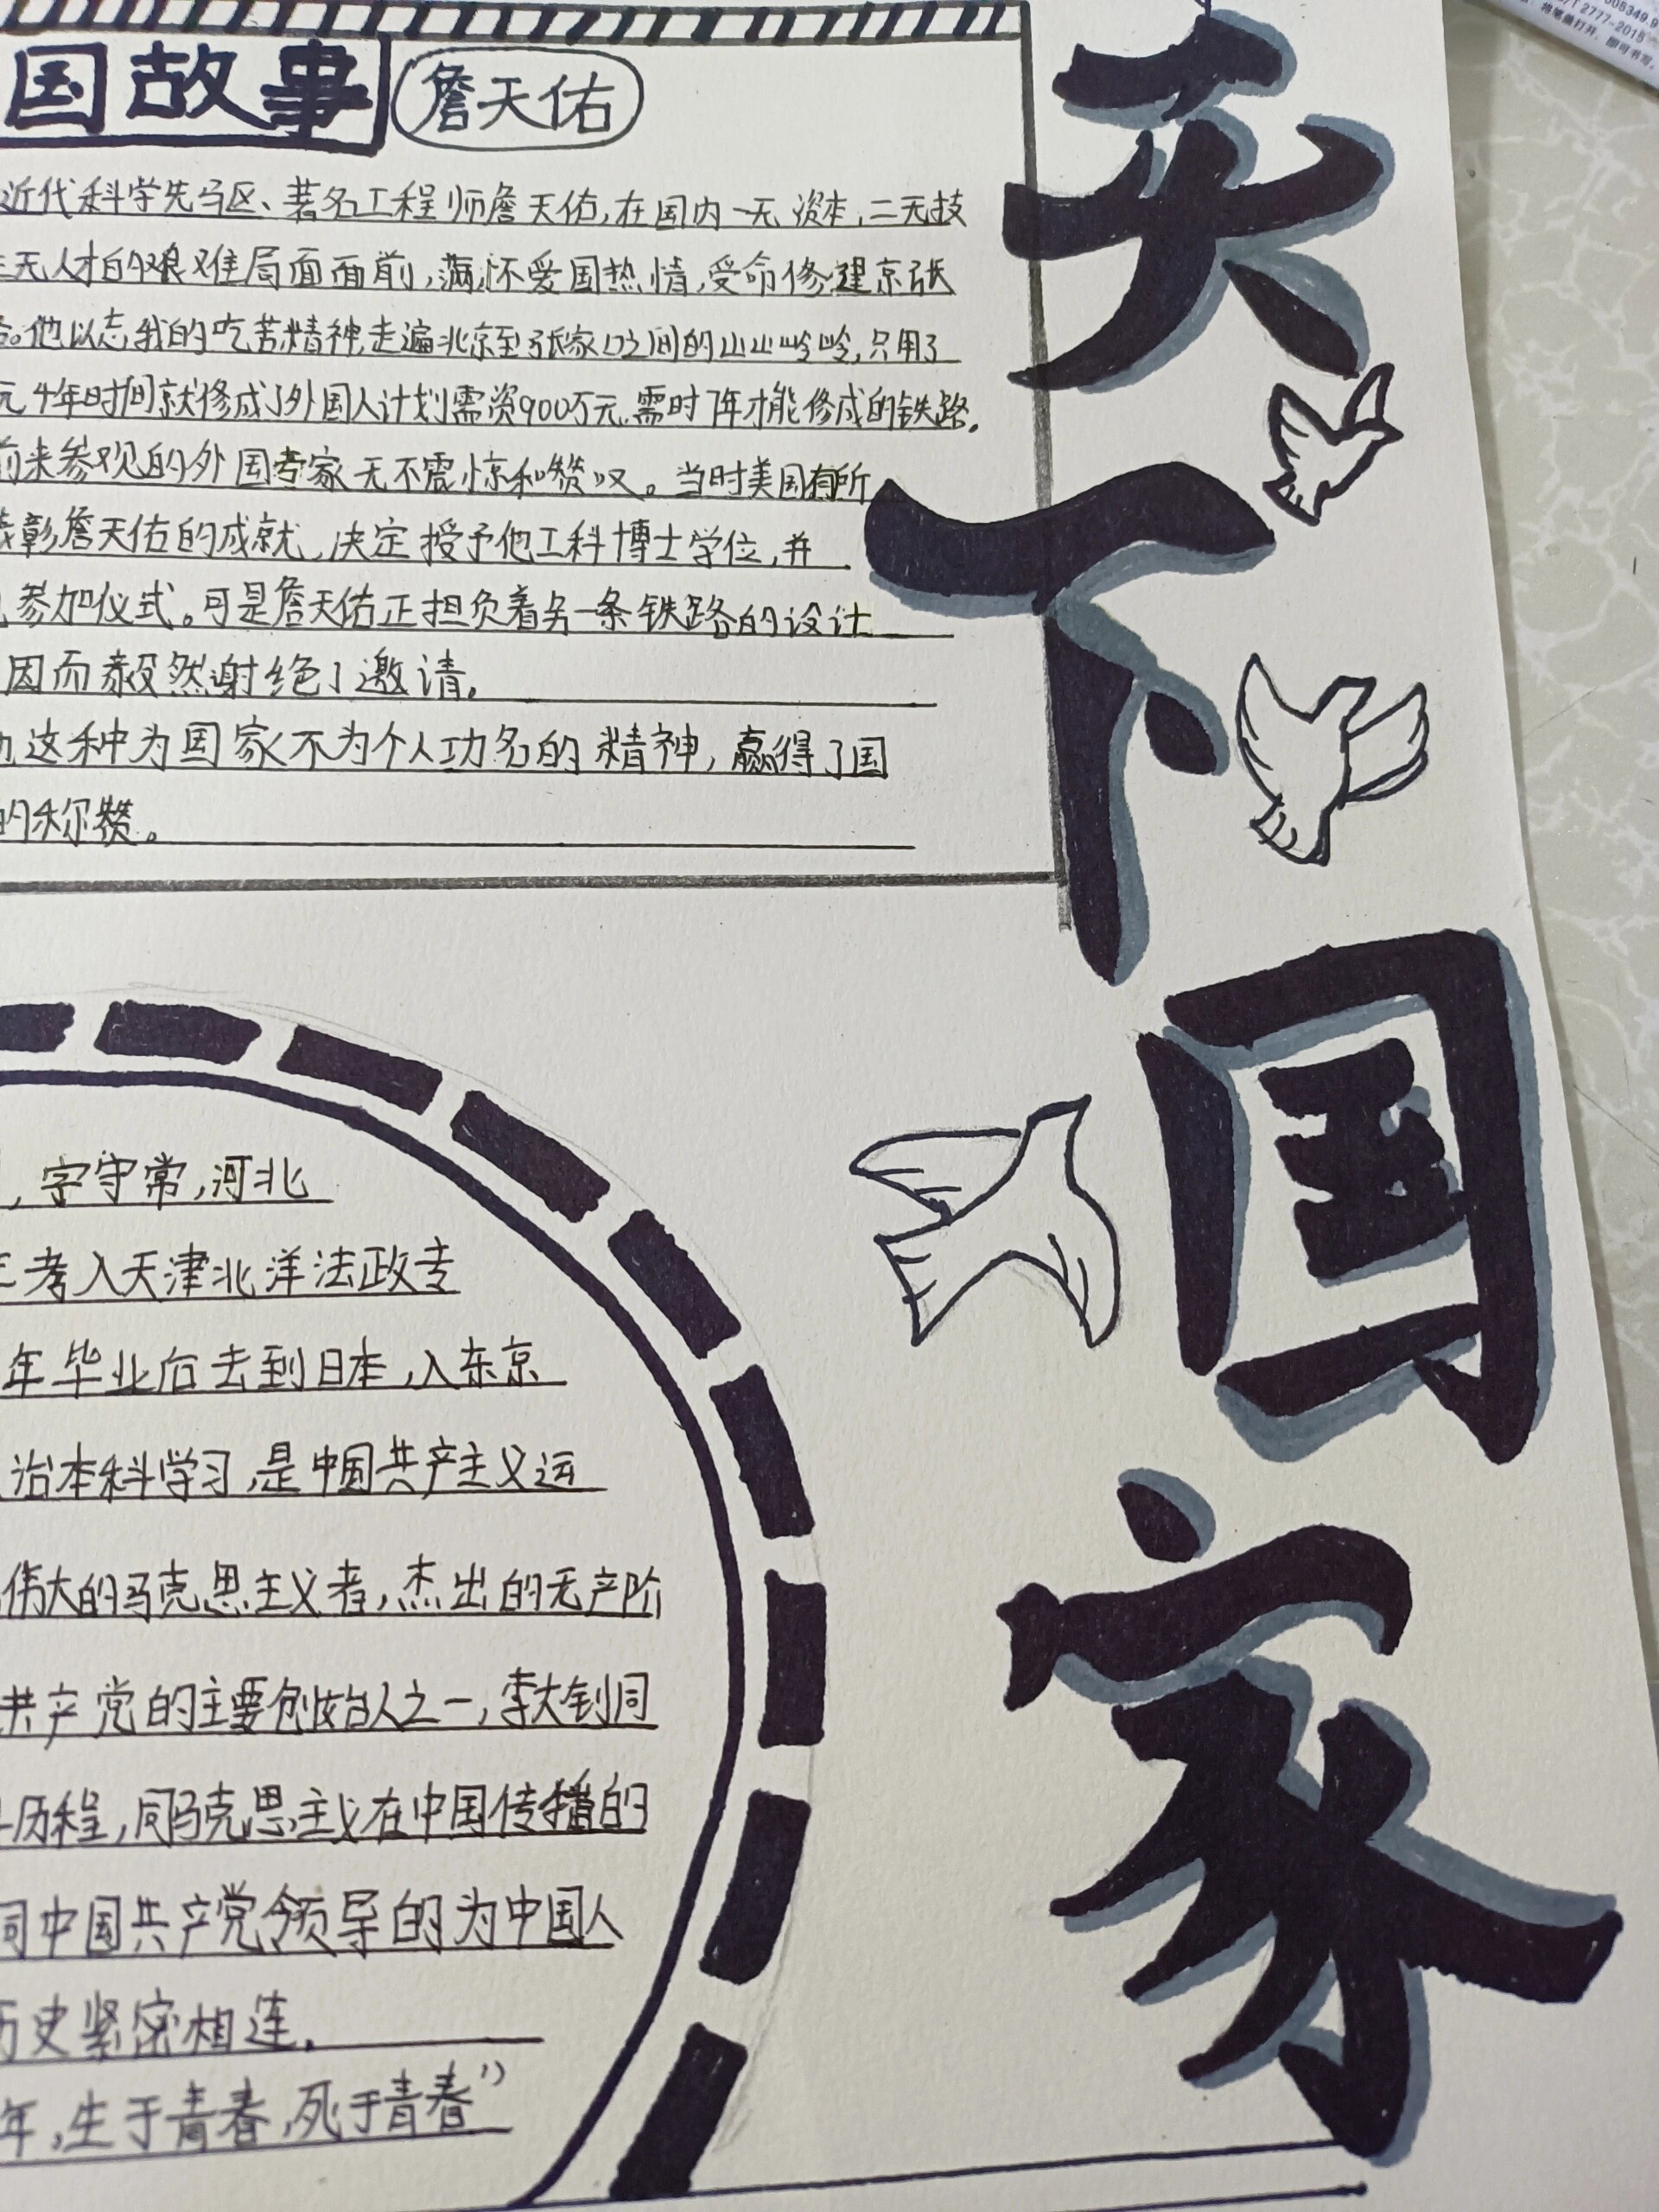 国故事
詹天佑
近代科学先马区、著名工程师詹天佑,在国内一无资本,二无技
三无人才的艰难局面面前,满怀爱国热情,受命修建京张
他以忘我的吃苦精神,走遍北京至张家口之间的山山岭岭,只用了
元,4年时间就修成了外国人计划需资900万元,需时7年才能修成的铁路。
前来参观的外国专家无不震惊和赞叹。当时美国有所
表彰詹天佑的成就,决定授予他工科博士学位,并
参加仪式。可是詹天佑正担负着另一条铁路的设计
因而毅然谢绝了邀请。
这种为国家不为个人功名的精神,赢得了国
的称赞。
天下国家
,字守常,河北
考入天津北洋法政专
年毕业后去到日本,入东京
治本科学习,是中国共产主义运
伟大的马克思主义者,杰出的无产阶
共产党的主要创始人之一,李大钊同
历程,同马克思主义在中国传播的
同中国共产党领导的为中国人
历史紧密相连。
年,生于青春,死于青春"
2777-2015